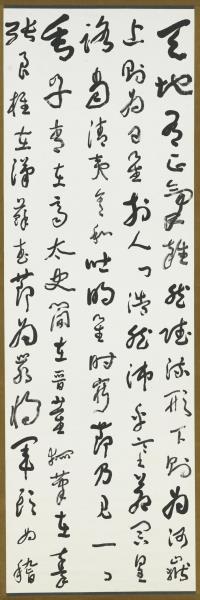 天地有正氣雜然賦流形下則為河嶽
上則為日星於人曰浩然沛乎塞蒼冥皇
路當清夷含和吐明庭時窮節乃見一一
垂丹青在齊太史簡在晉董狐筆在秦
張良椎在漢蘇武節為嚴將軍頭為嵇